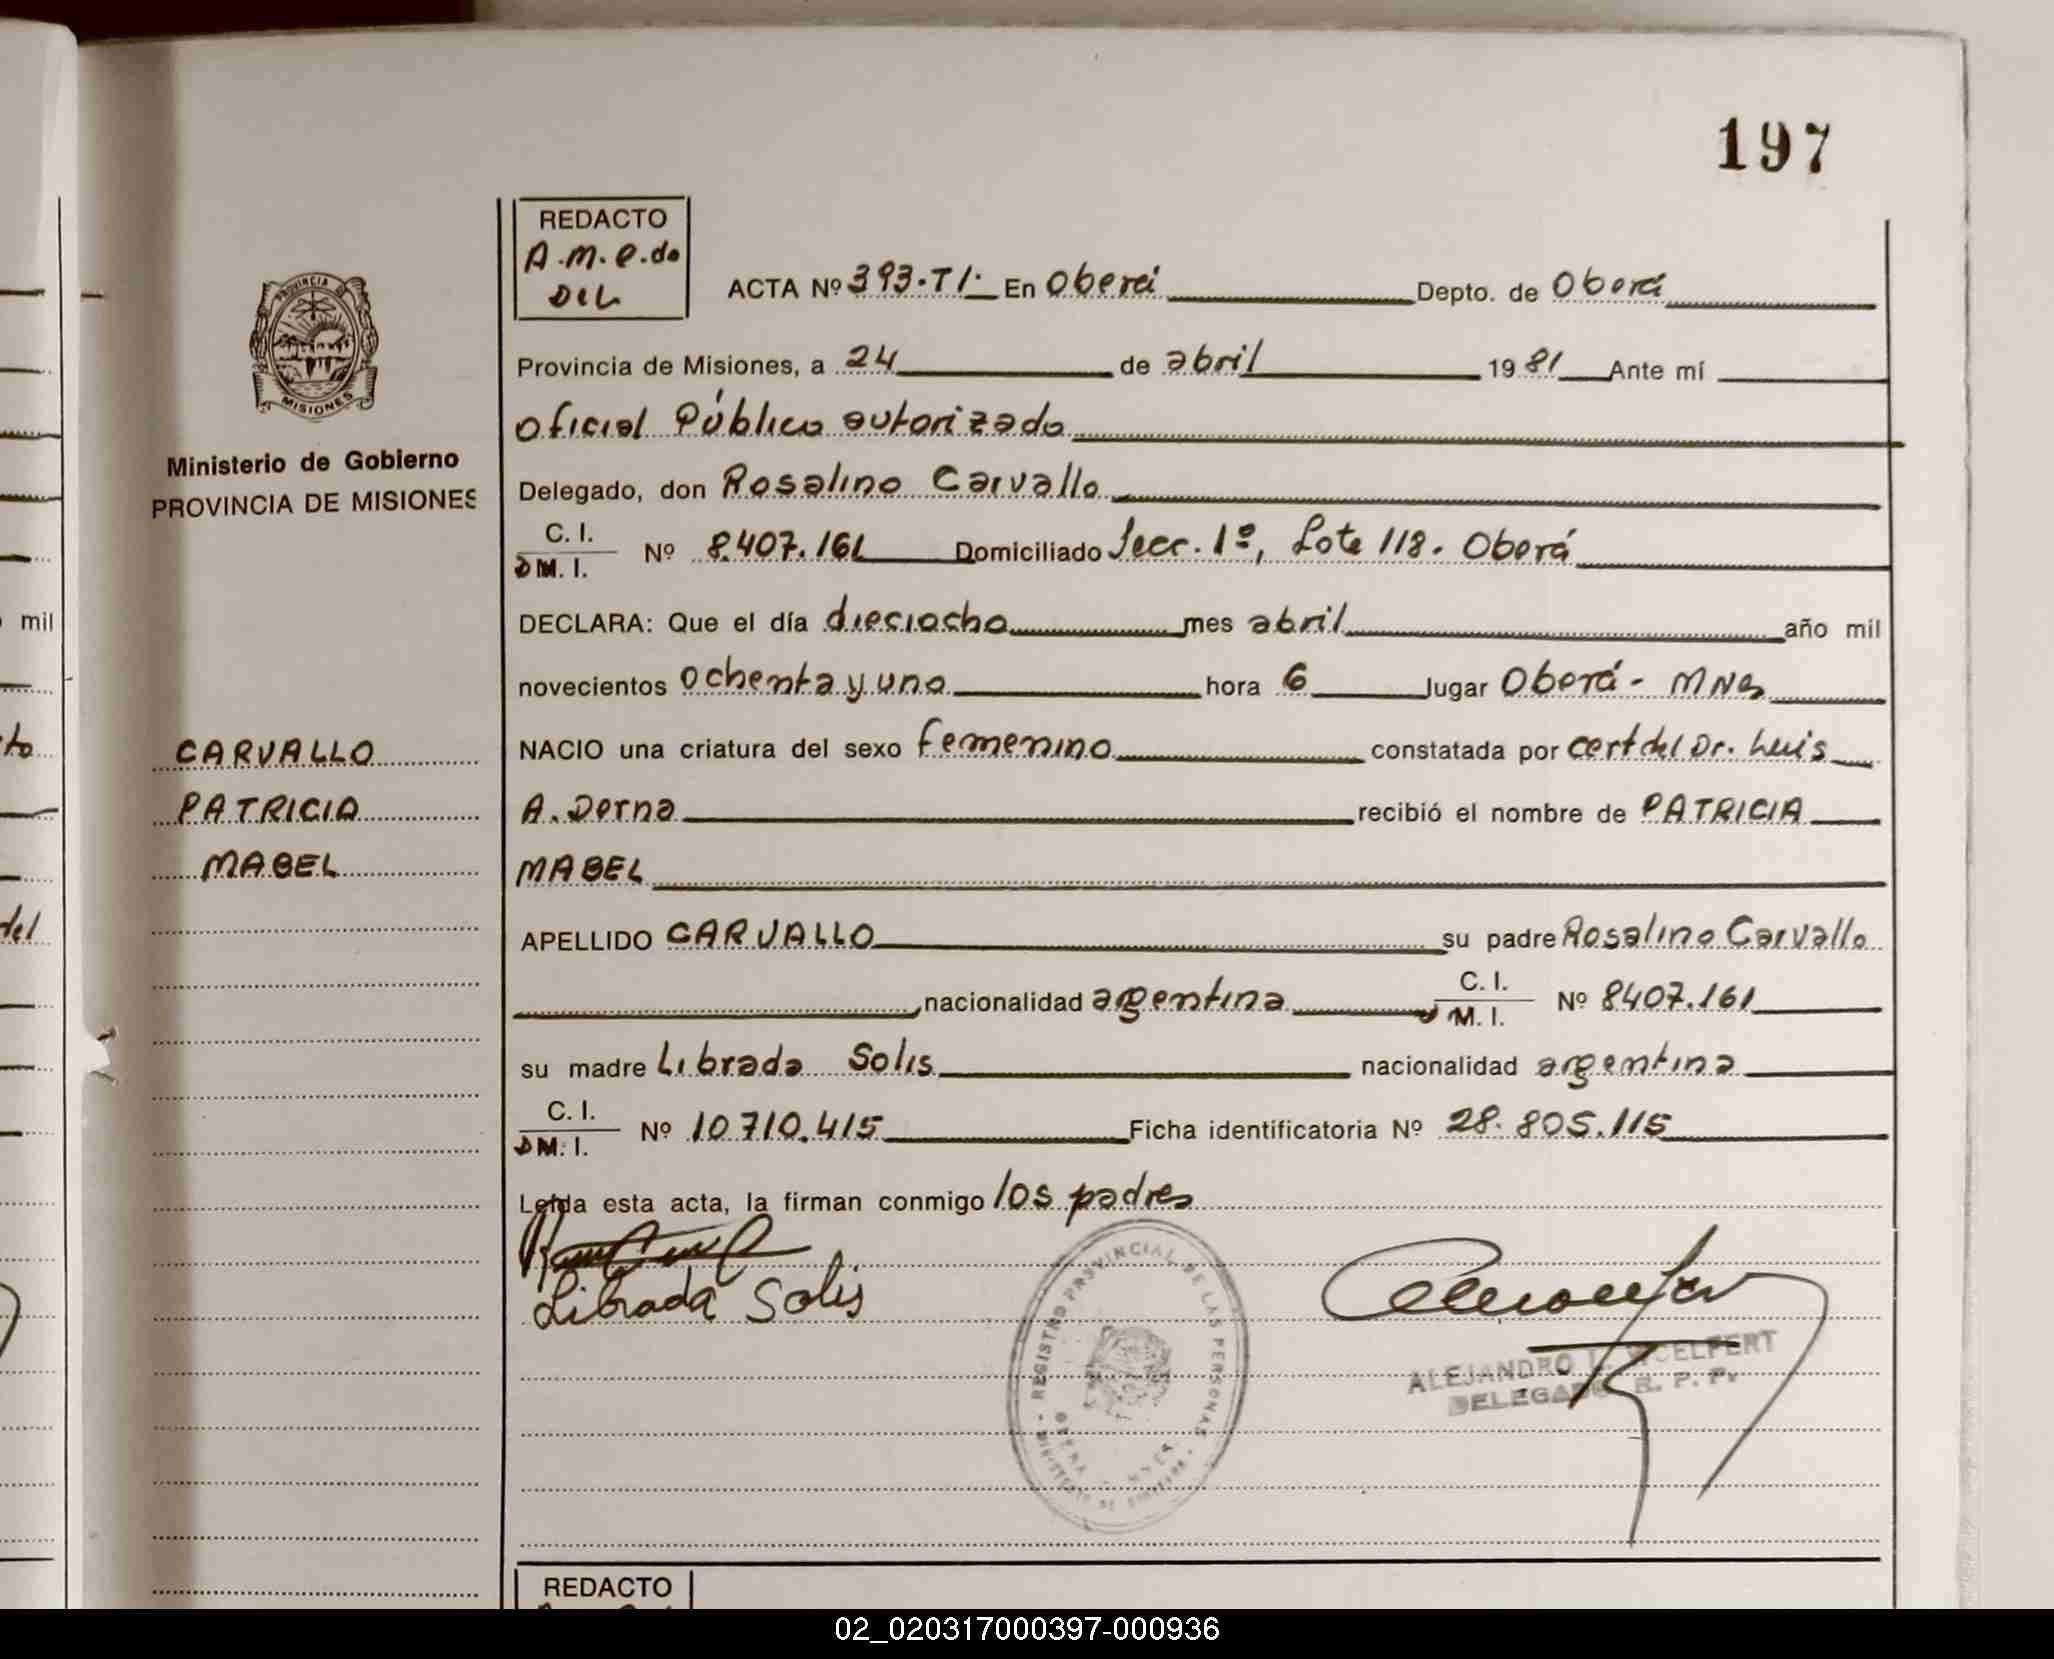 197
REDACTO
A.M.e.do
DEL
ACTA Nº 393.TI. En Oberá Depto. de Oberá
Provincia de Misiones, a 24 de abril 1981 Ante mí
Oficial Público autorizado
Delegado, don Rosalino Carvallo
C. I.
M. I. Nº 8.407.161 Domiciliado Secc. 1º, Lote 118. Oberá
DECLARA: Que el día dieciocho mes abril año mil
novecientos ochenta y uno hora 6 lugar Oberá - Mnes
NACIO una criatura del sexo femenino constatada por cert del Dr. Luis
A. Derna recibió el nombre de PATRICIA
MABEL
APELLIDO CARVALLO su padre Rosalino Carvallo
nacionalidad argentina C. I.
M. I. Nº 8407.161
su madre Librada Solis nacionalidad argentina
C. I.
M. I. Nº 10.710.415 Ficha identificatoria Nº 28.805.115
Leída esta acta, la firman conmigo los padres
Librada Solis
REGISTRO PROVINCIAL DE LAS PERSONAS
MINISTERIO DE GOBIERNO
OBERA
ALEJANDRO L. WOELFERT
DELEGADO R. P. P.
PROVINCIA DE
MISIONES
Ministerio de Gobierno
PROVINCIA DE MISIONES
CARVALLO
PATRICIA
MABEL
mil
del
REDACTO
02_020317000397-000936